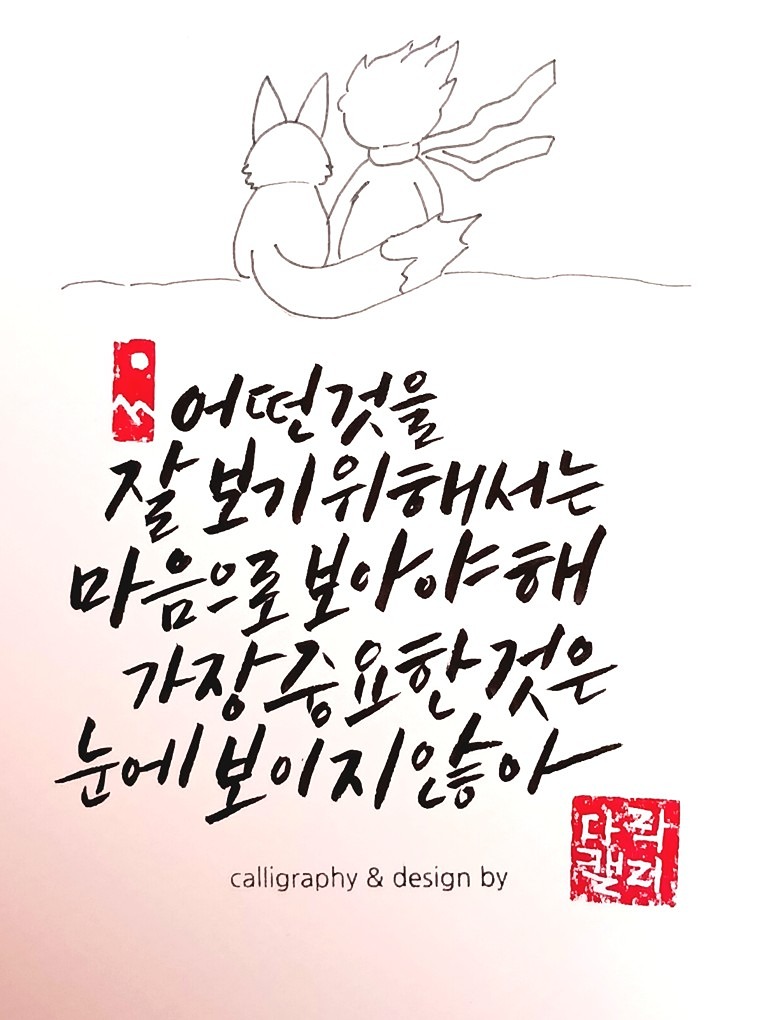 어떤것을
잘 보기위해서는
마음으로보아야해
가장중요한것은
눈에보이지않아
calligraphy & design by
다락
캘리